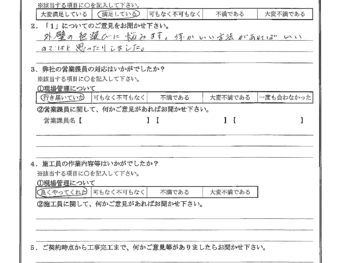 ※該当する項目に○を記入して下さい。
大変満足している 満足している 可もなく不可もなく 不満である 大変不満である
2．「1」についてのご意見をお聞かせ下さい。
外壁の色選びに悩みます。何かいい方法があればいい
のですけど思ったりしました。
3．弊社の営業課員の対応はいかがでしたか？
※該当する項目に○を記入して下さい。
①現場管理について
行き届いていた 可もなく不可もなく 不満である 大変不満である 一度も会わなかった
②営業課員に関して、何かご意見があればお聞かせ下さい。
営業課員名【 】 【 】 【 】
4．施工員の作業内容等はいかがでしたか？
※該当する項目に○を記入して下さい。
①現場管理について
良くやってくれた 可もなく不可もなく 不満である 大変不満である
②施工員に関して、何かご意見があればお聞かせ下さい。
5．ご契約時点から工事完工まで、何かご意見等がありましたらお聞かせ下さい。